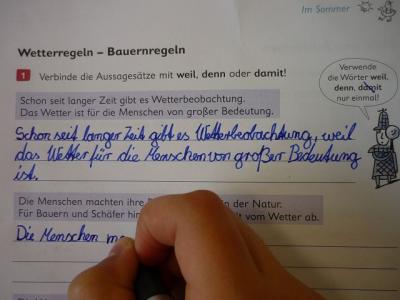 Im Sommer
Wetterregeln – Bauernregeln
1 Verbinde die Aussagesätze mit weil, denn oder damit!
Verwende
die Wörter weil,
denn, damit
nur einmal!
Schon seit langer Zeit gibt es Wetterbeobachtung.
Das Wetter ist für die Menschen von großer Bedeutung.
Schon seit langer Zeit gibt es Wetterbeobachtung, weil
das Wetter für die Menschen von großer Bedeutung
ist.
Die Menschen machten ihre in der Natur.
Für Bauern und Schäfer vom Wetter ab.
Die Menschen